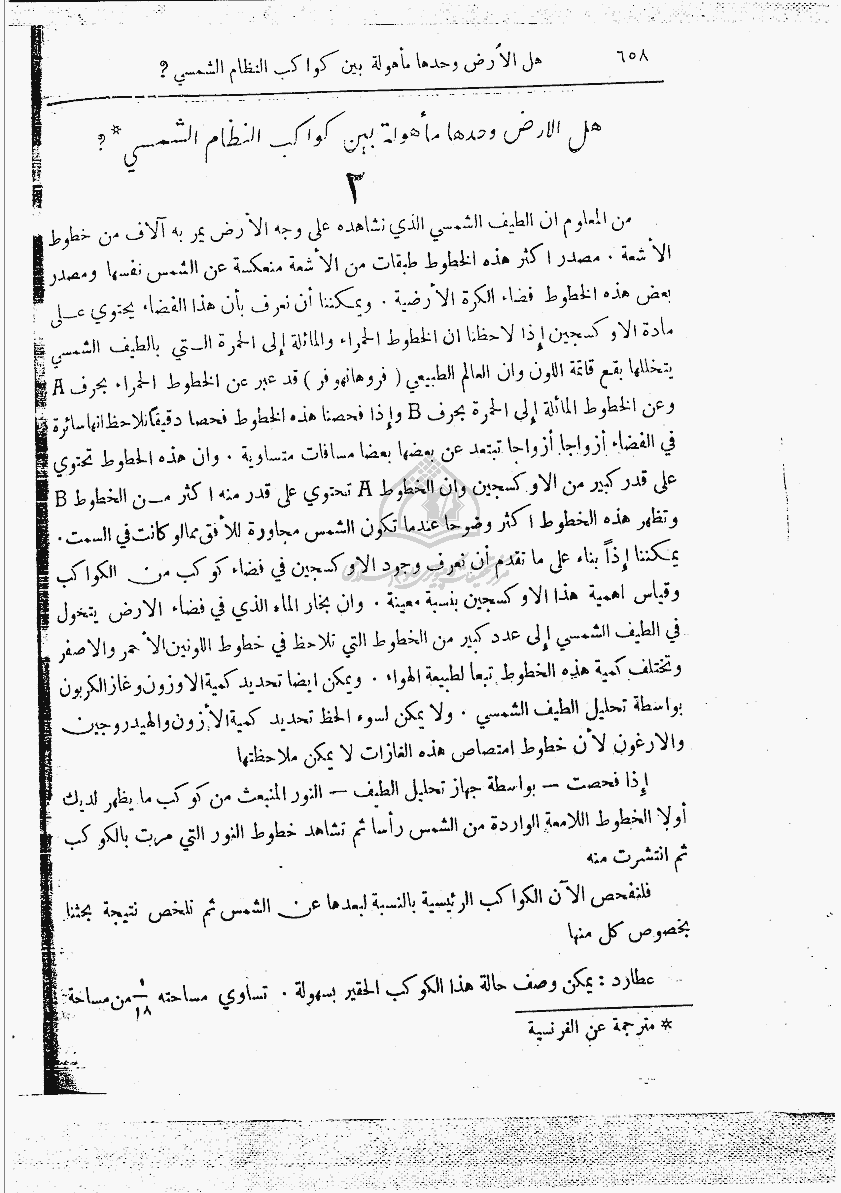 ٦٥٨
هل الأرض وحدها مأهولة بين كواكب النظام الشمسي؟
هل الارض وحدها مأهولة بين كواكب النظام الشمسي*؟
٢
من المعلوم ان الطيف الشمسي الذي نشاهده على وجه الأرض يمر به آلاف من خطوط
الأشعة . مصدر اكثر هذه الخطوط طبقات من الأشعة منعكسة عن الشمس نفسها ومصدر
بعض هذه الخطوط فضاء الكرة الأرضية . ويمكننا أن نعرف بأن هذا الفضاء يحتوي على
مادة الاوكسجين إذا لاحظنا ان الخطوط الحمراء والمائلة إلى الحمرة التي بالطيف الشمسي
يتخللها بقع قاتمة اللون وان العالم الطبيعي ( فروهانهوفر ) قد عبر عن الخطوط الحمراء بحرف A
وعن الخطوط المائلة إلى الحمرة بحرف B وإذا فحصنا هذه الخطوط فحصا دقيقاً نلاحظ انها سائرة
في الفضاء أزواجا أزواجا تبتعد عن بعضها بعضا مسافات متساوية . وان هذه الخطوط تحتوي
على قدر كبير من الاوكسجين وان الخطوط A تحتوي على قدر منه اكثر من الخطوط B
وتظهر هذه الخطوط اكثر وضوحا عندما تكون الشمس مجاورة للأفق ممالو كانت في السمت .
يمكننا إذاً بناء على ما تقدم أن نعرف وجود الاوكسجين في فضاء كوكب من الكواكب
وقياس اهمية هذا الاوكسجين بنسبة معينة . وان بخار الماء الذي في فضاء الارض يتخول
في الطيف الشمسي إلى عدد كبير من الخطوط التي تلاحظ في خطوط اللونين الأحمر والاصفر
وتختلف كمية هذه الخطوط تبعا لطبيعة الهواء . ويمكن ايضا تحديد كمية الاوزون وغاز الكربون
بواسطة تحليل الطيف الشمسي . ولا يمكن لسوء الحظ تحديد كمية الأزون والهيدروجين
والارغون لأن خطوط امتصاص هذه الغازات لا يمكن ملاحظتها
إذا فحصت — بواسطة جهاز تحليل الطيف — النور المنبعث من كوكب ما يظهر لديك
أولا الخطوط اللامعة الواردة من الشمس رأسا ثم تشاهد خطوط النور التي مرت بالكوكب
ثم انتشرت منه
فلنفحص الآن الكواكب الرئيسية بالنسبة لبعدها عن الشمس ثم نلخص نتيجة بحثنا
بخصوص كل منها
عطارد : يمكن وصف حالة هذا الكوكب الحقير بسهولة . تساوي مساحته ١/١٨ من مساحة
* مترجمة عن الفرنسية